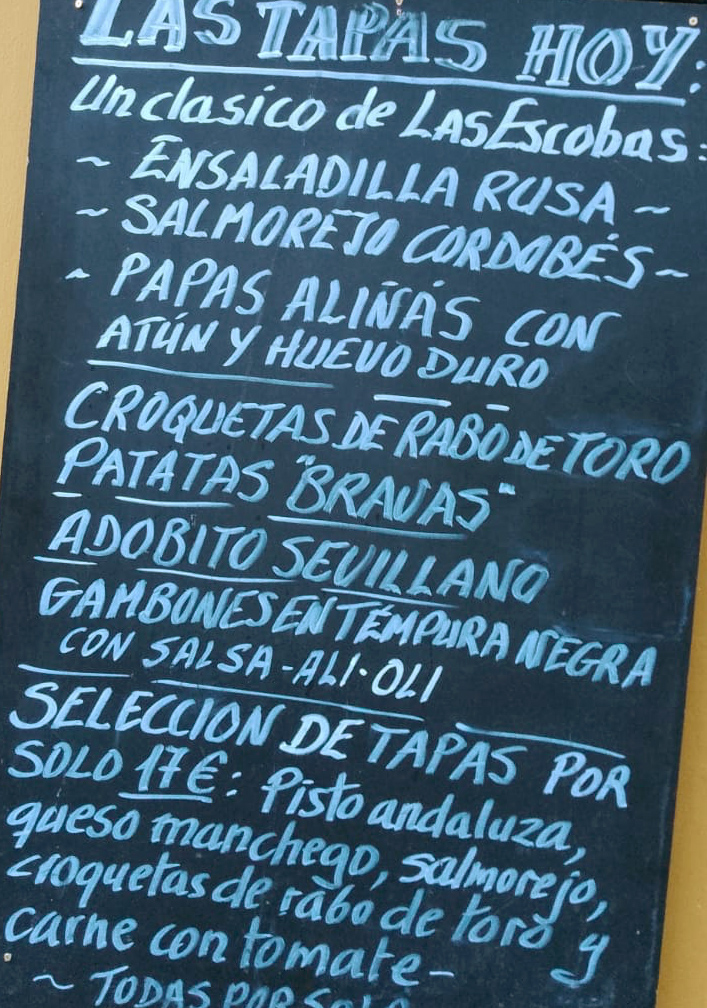 LAS TAPAS HOY:
Un clasico de LAS Escobas:
~ ENSALADILLA RUSA ~
~ SALMOREJO CORDOBÉS ~
~ PAPAS ALIÑÁS CON
ATÚN Y HUEVO DURO
CROQUETAS DE RABO DE TORO
PATATAS "BRAVAS"
ADOBITO SEVILLANO
GAMBONES EN TÉMPURA NEGRA
CON SALSA-ALI·OLI
SELECCION DE TAPAS POR
SOLO 17€: Pisto andaluza,
queso manchego, salmorejo,
croquetas de rabo de toro y
carne con tomate-
~ TODAS POR SOLO